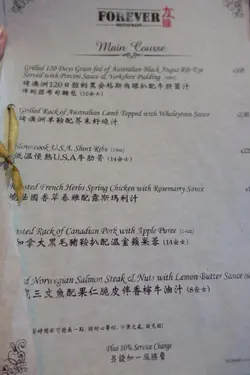 FOREVER
RESTAURANT
Main Course
Grilled 120 Days Grain-fed of Australian Black Angus Rib-Eye
Served with Porcini Sauce & Yorkshire Pudding
烤澳洲120日穀飼黑金格斯肉眼扒配牛肝菌汁
伴約克布甸麵包
Grilled Rack of Australian Lamb Topped with Wholegrain Sauce
烤澳洲羊鞍配芥末籽燒汁
Slow-cook U.S.A Short Ribs
低溫慢熱U.S.A牛肋骨
French Herbs Spring Chicken with Rosemary Sauce
法國香草春雞配露斯瑪利汁
Rack of Canadian Pork with Apple Puree
加拿大黑毛豬鞍扒配溫室蘋果蓉
Norwegian Salmon Steak & Nuts with Lemon Butter Sauce
三文魚配果仁脆皮伴香檸牛油汁
Plus 10% Service Charge
另設加一服務費